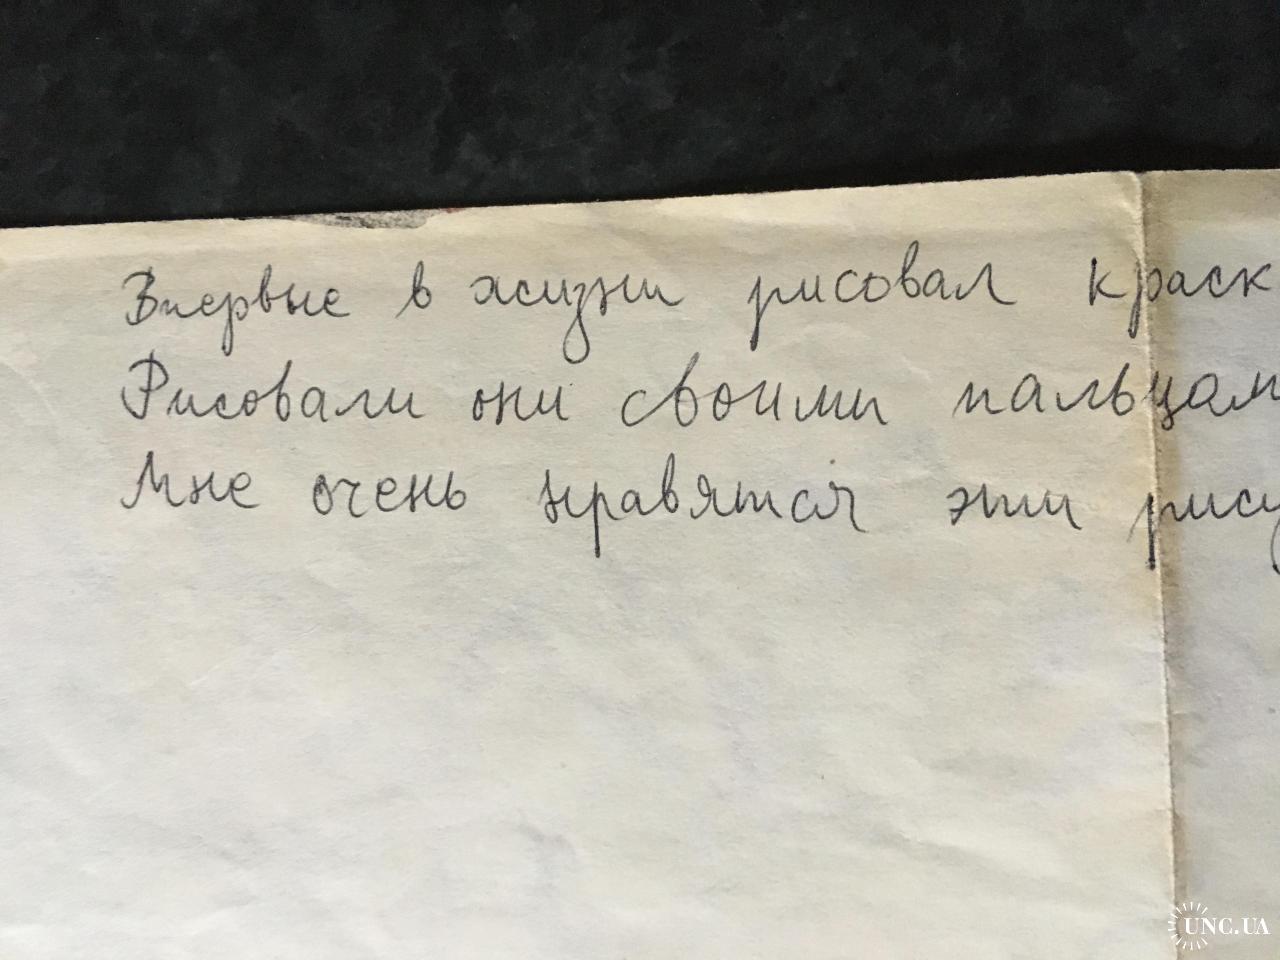 Впервые в жизни рисовал краск
Рисовали они своими пальцам
Мне очень нравятся эти рису
UNC.UA